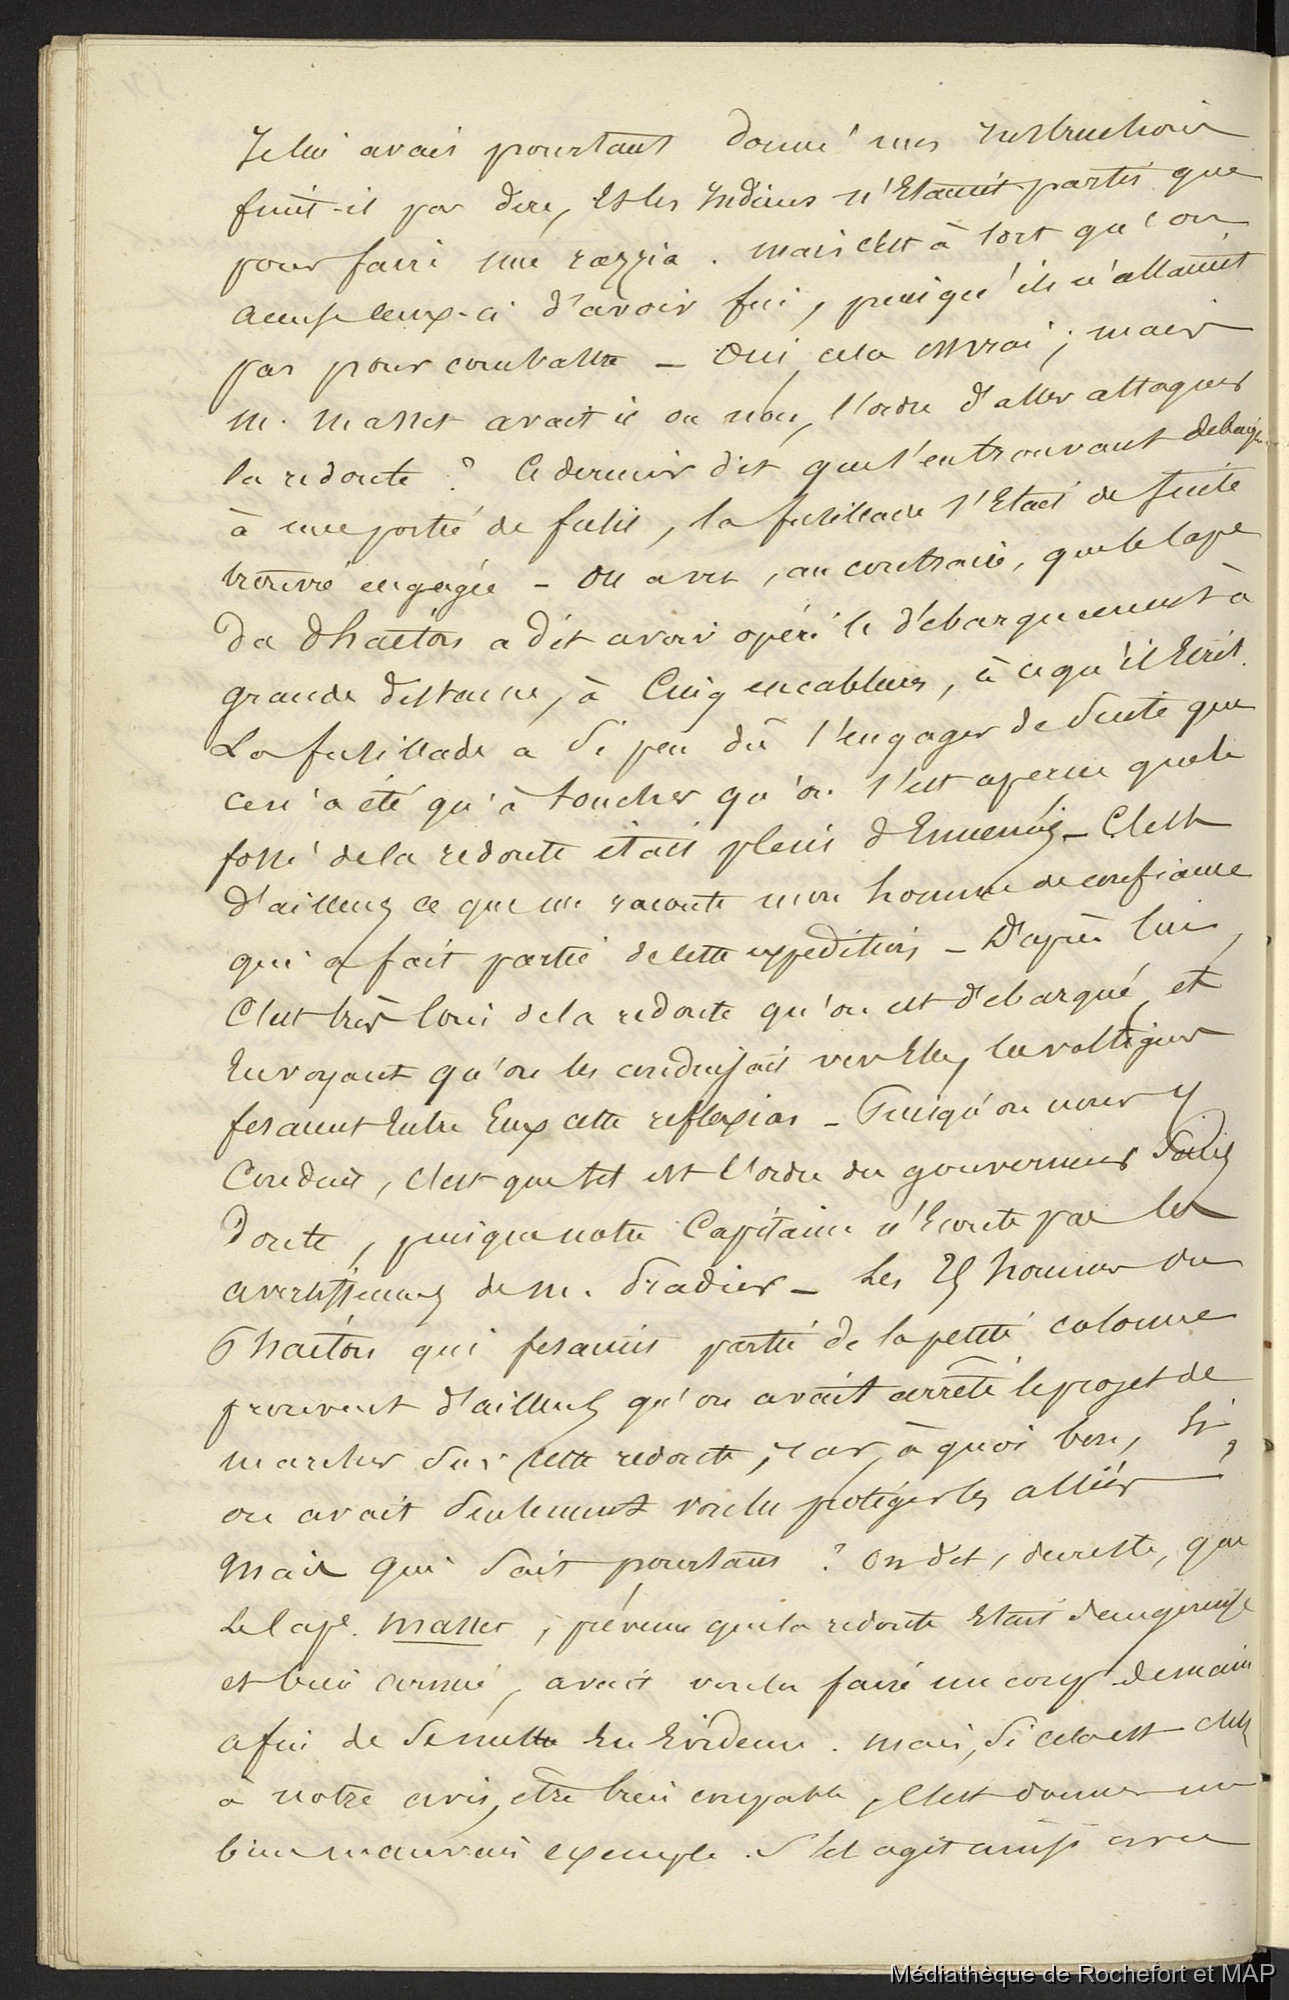 Je lui avais pourtant donné mes Instructions
finit-il par dire, Et les Indiens n'Etaient partis que
pour faire une razzia. mais c'est à tort qu'on
accuse ceux-ci d'avoir fui, puisqu'ils n'allaient
pas pour combattre _ Oui, cela est vrai; mais
m. masset avait il ou non, l'ordre d'aller attaquer
la redoute? Ce dernier dit que s'en trouvant
à une portée de fusil, la fusillade s'Etait de suite
trouvé engagée - On a vu, au contraire, que le Cape
du Phaëton a dit avoir opéré le débarquement à
grande distance, à Cinq encablures, à ce qu'il Ecrit.
La fusillade a Si peu dû s'engager de Suite que
ce n'a été qu'à toucher qu'on s'est aperçu que le
fossé de la redoute était plein d'Ennemis - C'est
d'ailleurs ce que me raconte mon homme de confiance
qui a fait partie de cette expedition - D'après lui,
C'est très loin de la redoute qu'on est débarqué, et
En voyant qu'on les conduisait vers Elle, les voltigeurs
fesaient Entre Eux cette reflexion - Puisqu'on nous y
Conduit, c'est que tel est l'ordre du gouverneur Sans
doute, puisque notre Capitaine n'Ecoute pas les
avertissements de m. Pradier - Les 25 hommes du
Phaëton qui fesaient partie de la petite colonne
prouvent d'ailleurs qu'on avait arrêté le projet de
marcher Sur Cette redoute, car, à quoi bon, Si,
on avait Seulement voulu protéger les alliés
Mais qui Sait pourtant? On dit, du reste, que
Le Cape. Masset, prévenu que la redoute Etait dangereuse
et bien armée, avait voulu faire un coup de main
afin de Se mettre En Evidence. mais, Si cela est c'est
à notre avis, être bien coupable, C'est donner un
bien mauvais exemple. S'il agit ainsi avec
Médiathèque de Rochefort et MAP